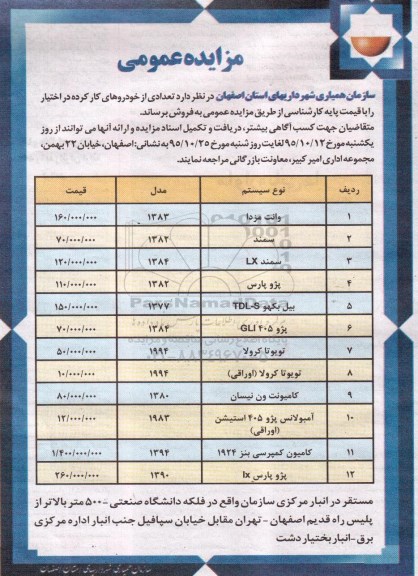 مزایده عمومی
سازمان همیاری شهرداریهای استان اصفهان در نظر دارد تعدادی از خودروهای کارکرده در اختیار
را با قیمت پایه کارشناسی از طریق مزایده عمومی به فروش برساند.
متقاضیان جهت کسب آگاهی بیشتر، دریافت و تکمیل اسناد مزایده و ارائه آنها می توانند از روز
یکشنبه مورخ ۹۵/۱۰/۱۲ لغایت روز شنبه مورخ ۹۵/۱۰/۲۵ به نشانی: اصفهان، خیابان ۲۲ بهمن،
مجموعه اداری امیر کبیر، معاونت بازرگانی مراجعه نمایند.
ردیف نوع سیستم مدل قیمت
۱ وانت مزدا ۱۳۸۳ ۱۶۰/۰۰۰/۰۰۰
۲ سمند ۱۳۸۲ ۷۰/۰۰۰/۰۰۰
۳ سمند LX ۱۳۸۴ ۱۲۰/۰۰۰/۰۰۰
۴ پژو پارس ۱۳۸۲ ۱۱۰/۰۰۰/۰۰۰
۵ بیل بکهو TDL-S ۱۳۷۷ ۱۵۰/۰۰۰/۰۰۰
۶ پژو ۴۰۵ GLI ۱۳۸۲ ۷۰/۰۰۰/۰۰۰
۷ تویوتا کرولا ۱۹۹۴ ۵۰/۰۰۰/۰۰۰
۸ تویوتا کرولا (اوراقی) ۱۹۹۴ ۱۰/۰۰۰/۰۰۰
۹ کامیونت ون نیسان ۱۳۸۰ ۸۰/۰۰۰/۰۰۰
۱۰ آمبولانس پژو ۴۰۵ استیشن (اوراقی) ۱۹۸۳ ۱۲/۰۰۰/۰۰۰
۱۱ کامیون کمپرسی بنز ۱۹۲۴ ۱۳۹۴ ۱/۴۰۰/۰۰۰/۰۰۰
۱۲ پژو پارس lx ۱۳۹۰ ۲۶۰/۰۰۰/۰۰۰
مستقر در انبار مرکزی سازمان واقع در فلکه دانشگاه صنعتی - ۵۰۰ متر بالاتر از
پلیس راه قدیم اصفهان - تهران مقابل خیابان سپافیل جنب انبار اداره مرکزی
برق - انبار بختیار دشت